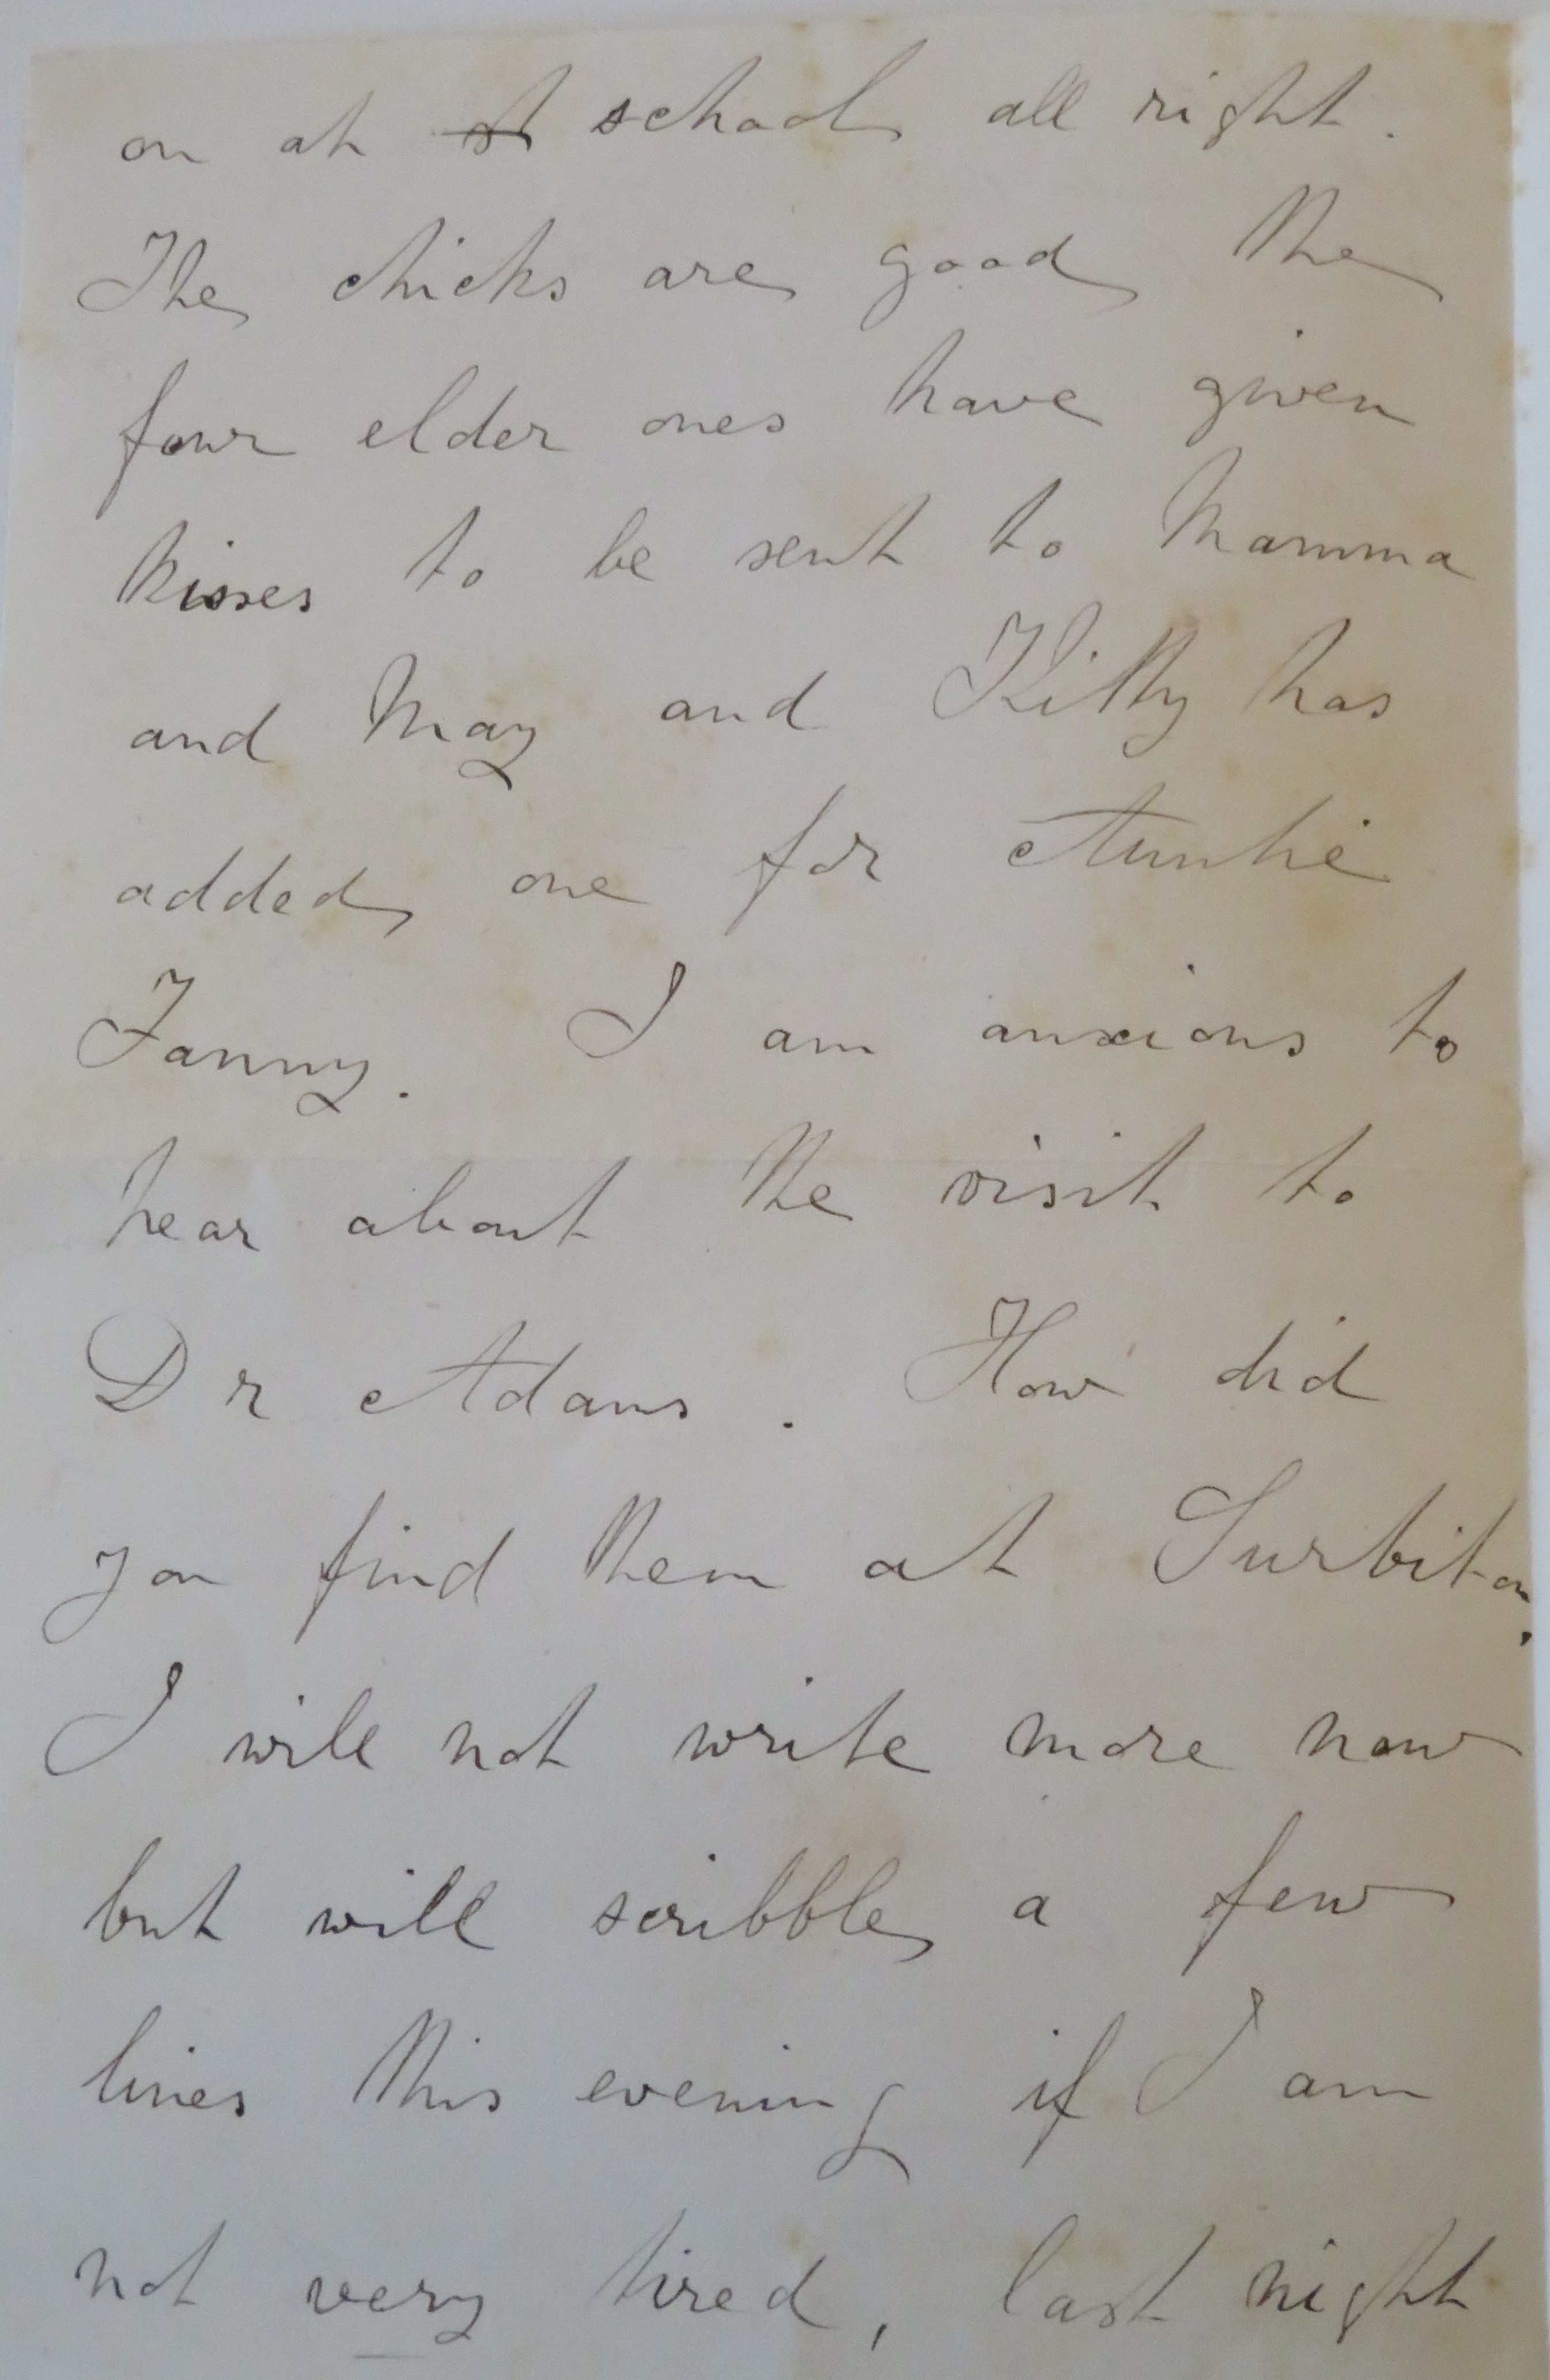 on at school all right.
The chicks are good the
four elder ones have given
kisses to be sent to Mamma
and May and Kitty has
added one for Auntie
Fanny. I am anxious to
hear about the visit to
Dr Adams. How did
you find them at Surbiton.
I will not write more now
but will scribble a few
lines this evening if I am
not very tired, last night